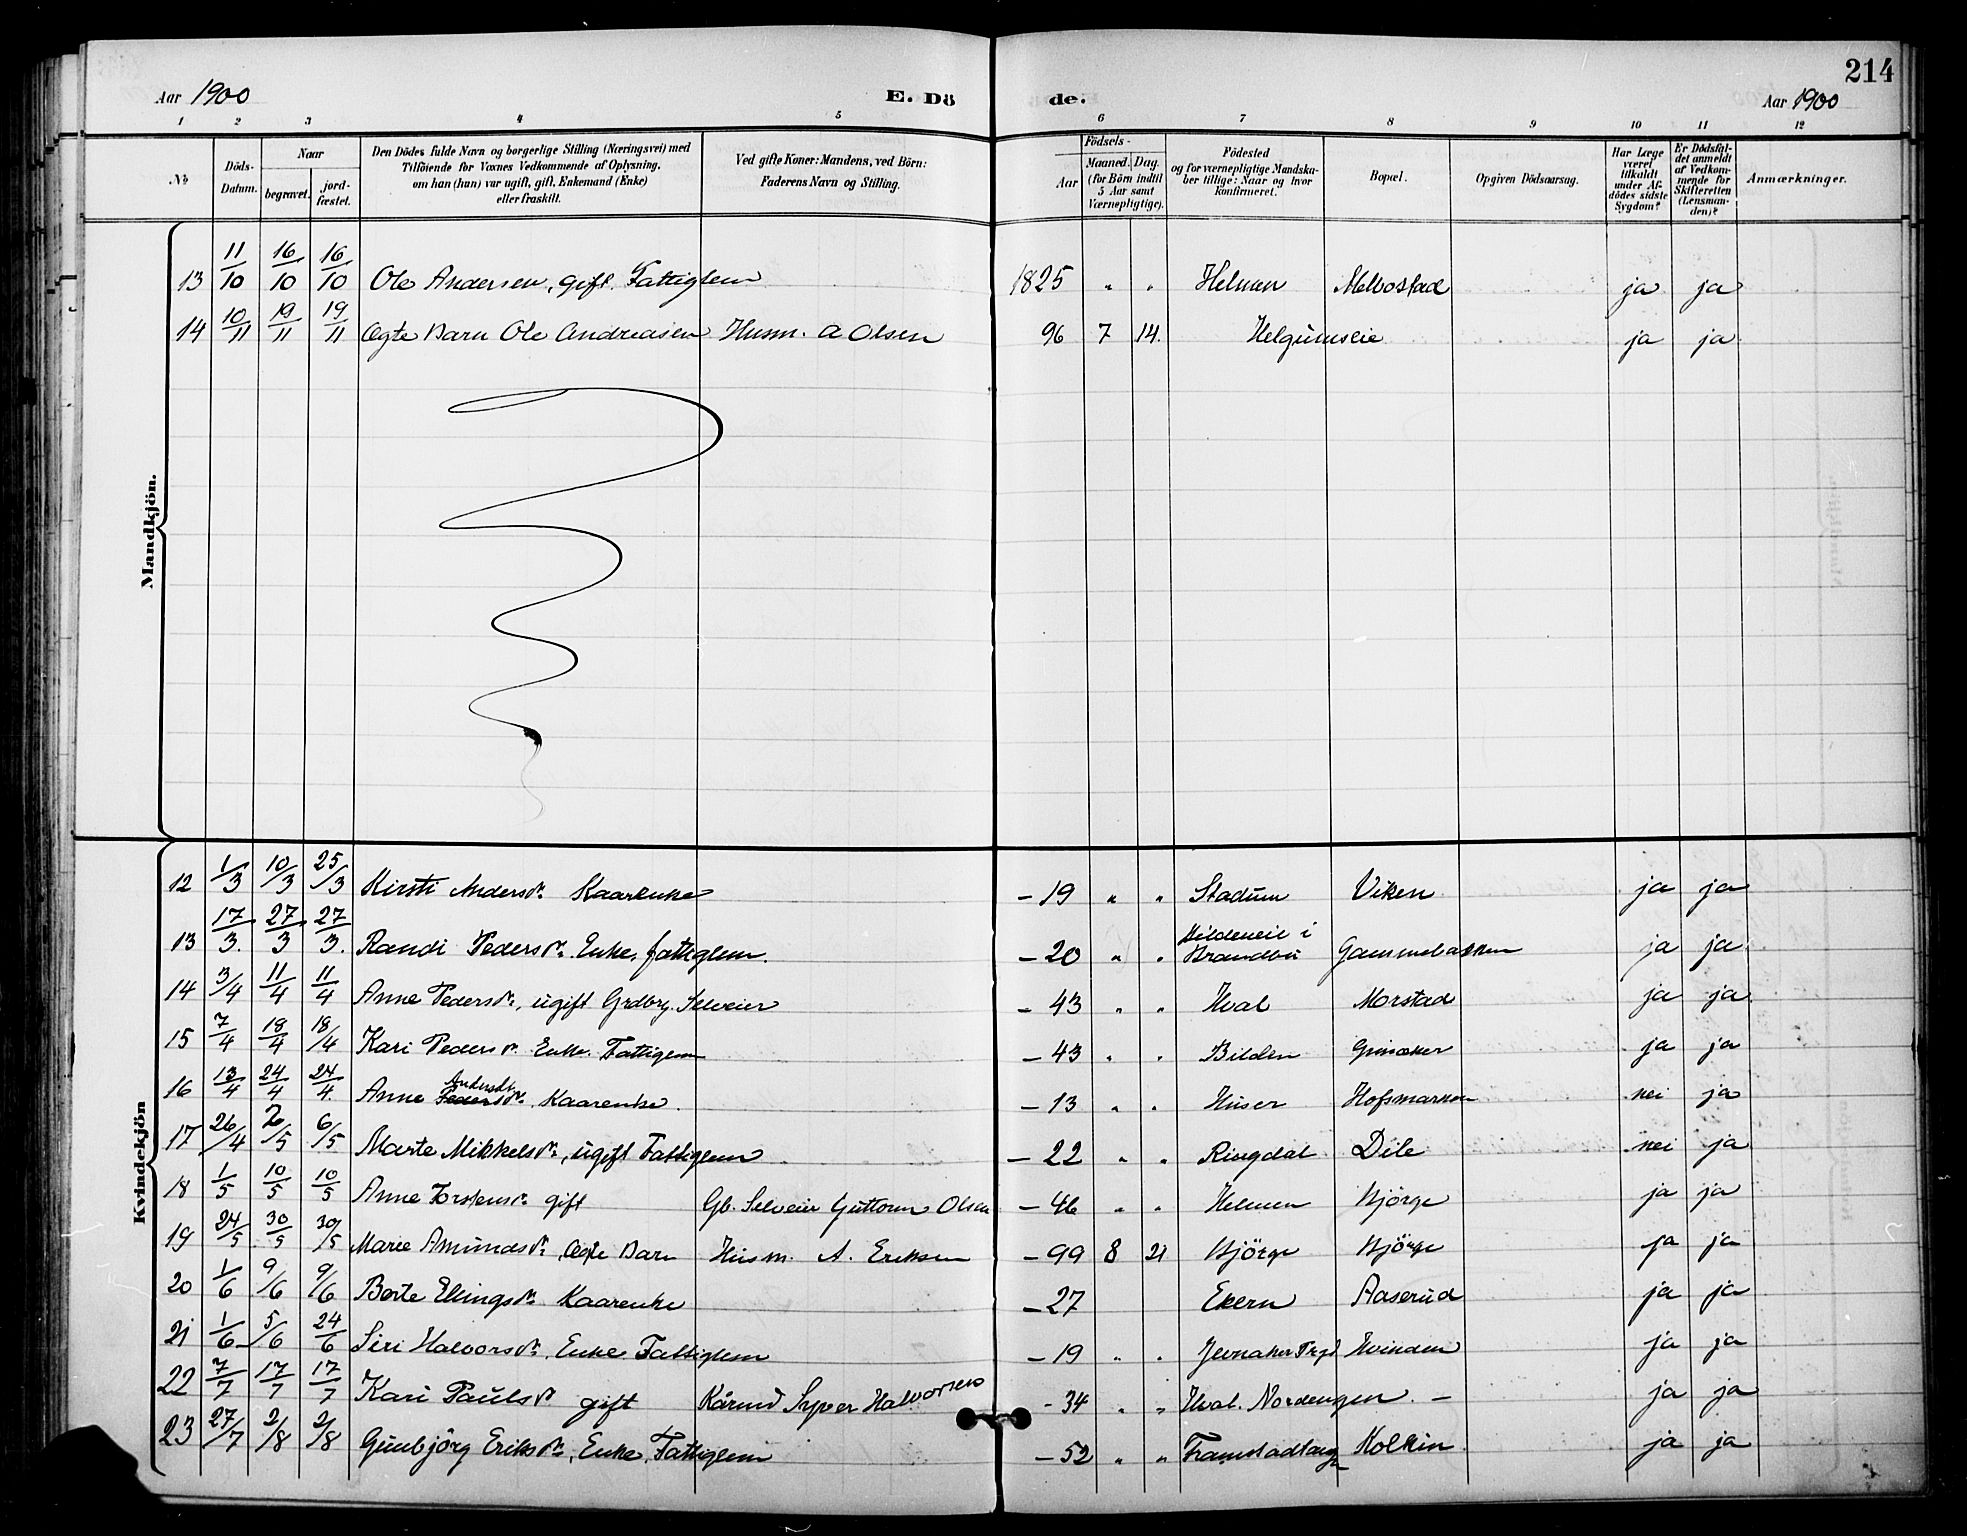 214
Aar 1900 E. Dö de. Aar 1900
1 2 3 4 5 6 7 8 9 10 11 12
No
Döds-Datum.
Naar
begravet.
jord-fæstet.
Den Dödes fulde Navn og borgerlige Stilling (Næringsvei) med
Tilföiende for Voxnes Vedkommende af Oplysning,
om han (hun) var ugift, gift, Enkemand (Enke)
eller fraskilt.
Ved gifte Koner: Mandens, ved Börn:
Faderens Navn og Stilling.
Födsels-
Aar
Maaned. Dag.
(for Börn indtil
5 Aar samt
Værnepligtige).
Födested
og for værnepligtige Mandska-
ber tillige: Naar og hvor
konfirmeret.
Bopæl.
Opgiven Dödsaarsag.
Har Læge
været
tilkaldt
under Af-
dödes sidste
Sygdom?
Er Dödsfal-
det anmeldt
af Vedkom-
mende for
Skifteretten
(Lensman-
den)?
Anmærkninger.
Mandkjön.
13 11/10 16/10 16/10 Ole Andersen, gift. Fattiglem 1825 " " Helmen Melbostad ja ja
14 10/11 19/11 19/11 Ægte Barn Ole Andreasen Husm. A Olsen 96 7 14. Helgumseie ja ja
Kvindekjön
12 1/3 10/3 25/3 Kirsti Andersdr. Kaarenke – 19 " " Stadum Viken ja ja
13 17/3. 27/3 27/3. Randi Pedersdr. Enke, fattiglem. – 20 " " Brandbu ja ja
14 3/4 11/4 11/4 Anne Pedersdr., ugift Grdbrg. Selveier – 43 " " Hval Morstad ja ja
15 7/4 18/4 18/4 Kari Pedersdr. Enke. Fattiglem – 43 " " Bilden Grinaker ja ja
16 13/4 24/4 24/4. Anne Andersdr. Kaarenke. – 13 " " Huser Hofsmarken nei ja
17 26/4 /5 6/5 Marte Mikkelsdr., ugift Fattiglem – 22 " " Ringdal Dile nei ja
18 1/5 10/5 10/5 Anne Torstensdr. gift Gb. Selveier Guttorm Olsen – 46 " " Helmen Björge ja ja
19 24/5 30/5 30/5 Marie Amundsdr. Ægte Barn Husm. A. Eriksen – 99 8 21 Björge Björge ja ja
20 1/6 9/6 9/6 Berte Elingsdr. Kaarenke – 27 Ekern Aaserud ja ja
21 1/6 5/6 24/6 Siri Halvorsdr. Enke Fattiglem – 19 " " Jevnaker Prgd Hvinden ja ja
22 7/7 17/7 17/7 Kari Paulsdr gift Kårmd Syver Halvorsen - 34 " " Hval. Nordengen. – ja ja
23 27/7 2/8 2/8 Gunbjörg Eriksdr., Enke, Fattiglem – 52 " " Kolkin ja ja